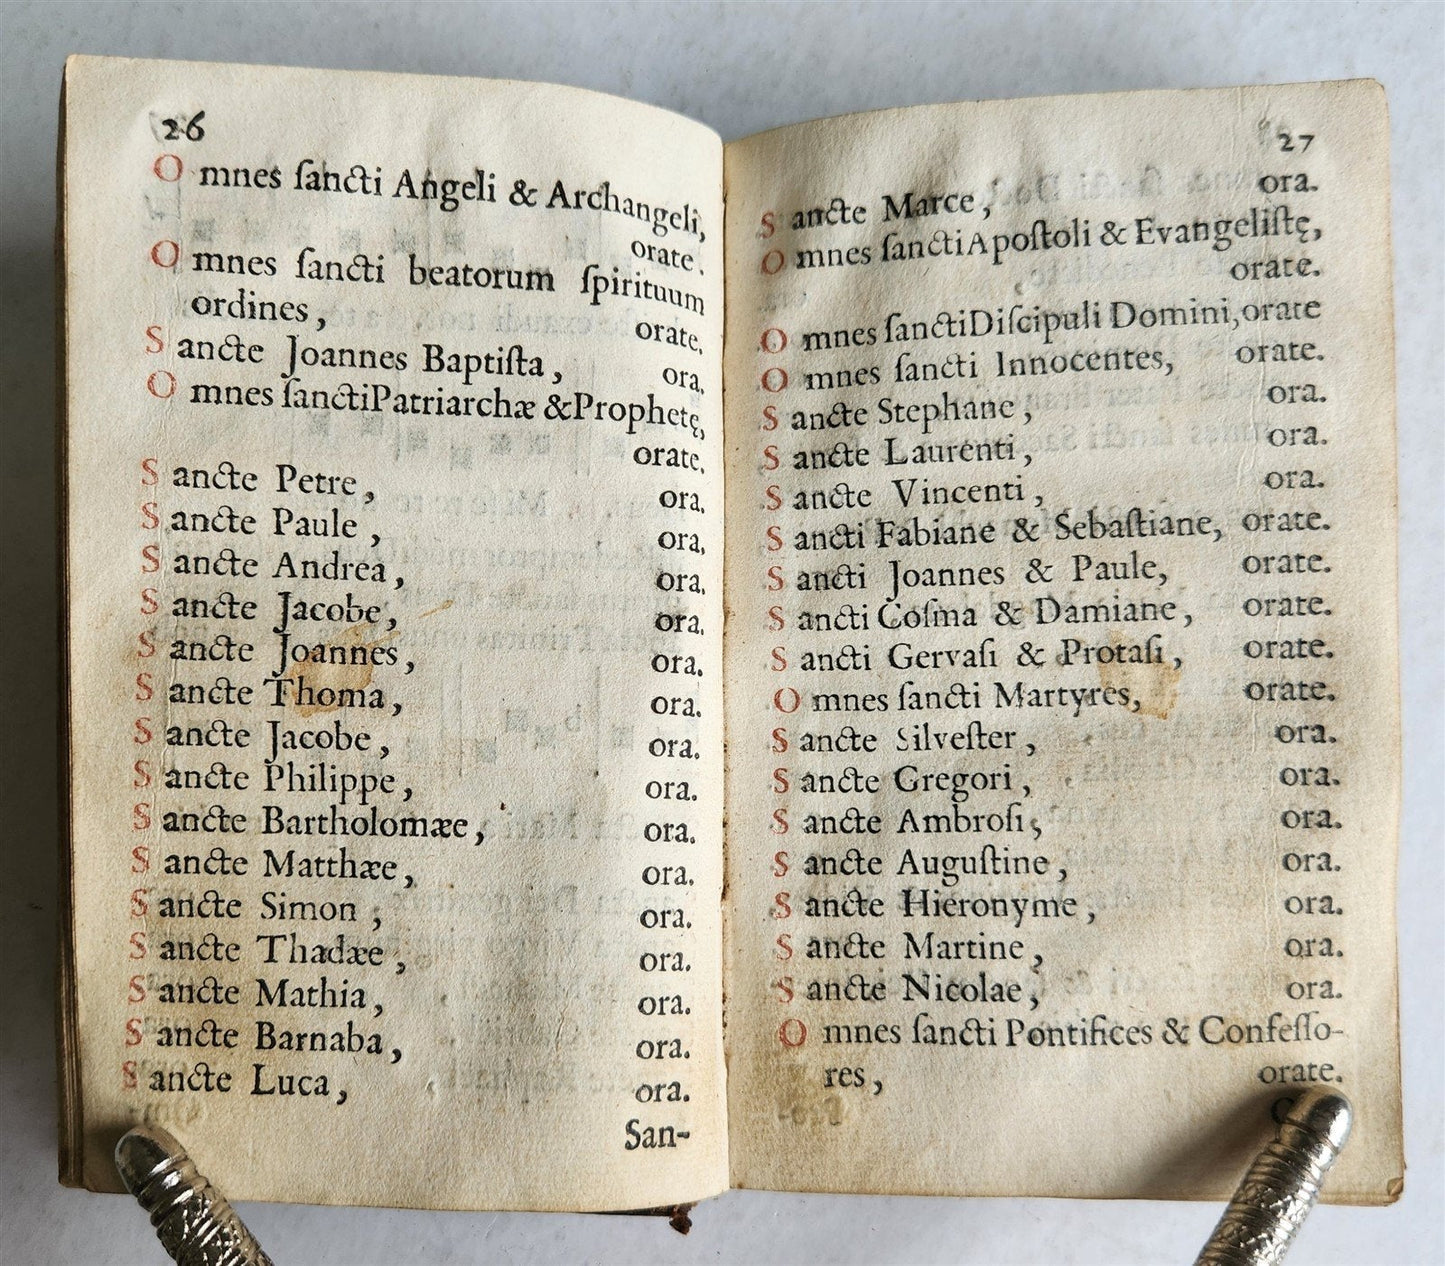 26
Omnes ſancti Angeli & Archangeli,
orate.
Omnes ſancti beatorum ſpirituum
ordines, orate.
Sancte Joannes Baptiſta, ora.
Omnes ſancti Patriarchæ & Prophetę,
orate.
Sancte Petre, ora.
Sancte Paule, ora.
Sancte Andrea, ora.
Sancte Jacobe, ora.
Sancte Joannes, ora.
Sancte Thoma, ora.
Sancte Jacobe, ora.
Sancte Philippe, ora.
Sancte Bartholomæe, ora.
Sancte Matthæe, ora.
Sancte Simon, ora.
Sancte Thadæe, ora.
Sancte Mathia, ora.
Sancte Barnaba, ora.
Sancte Luca, ora.
San-
27
Sancte Marce, ora.
Omnes ſancti Apoſtoli & Evangeliſtę,
orate.
Omnes ſancti Diſcipuli Domini, orate
Omnes ſancti Innocentes, orate.
Sancte Stephane, ora.
Sancte Laurenti, ora.
Sancte Vincenti, ora.
Sancti Fabiane & Sebaſtiane, orate.
Sancti Joannes & Paule, orate.
Sancti Coſma & Damiane, orate.
Sancti Gervaſi & Protaſi, orate.
Omnes ſancti Martyres, orate.
Sancte Silveſter, ora.
Sancte Gregori, ora.
Sancte Ambroſi, ora.
Sancte Auguſtine, ora.
Sancte Hieronyme, ora.
Sancte Martine, ora.
Sancte Nicolae, ora.
Omnes ſancti Pontifices & Confeſſo-
res, orate.